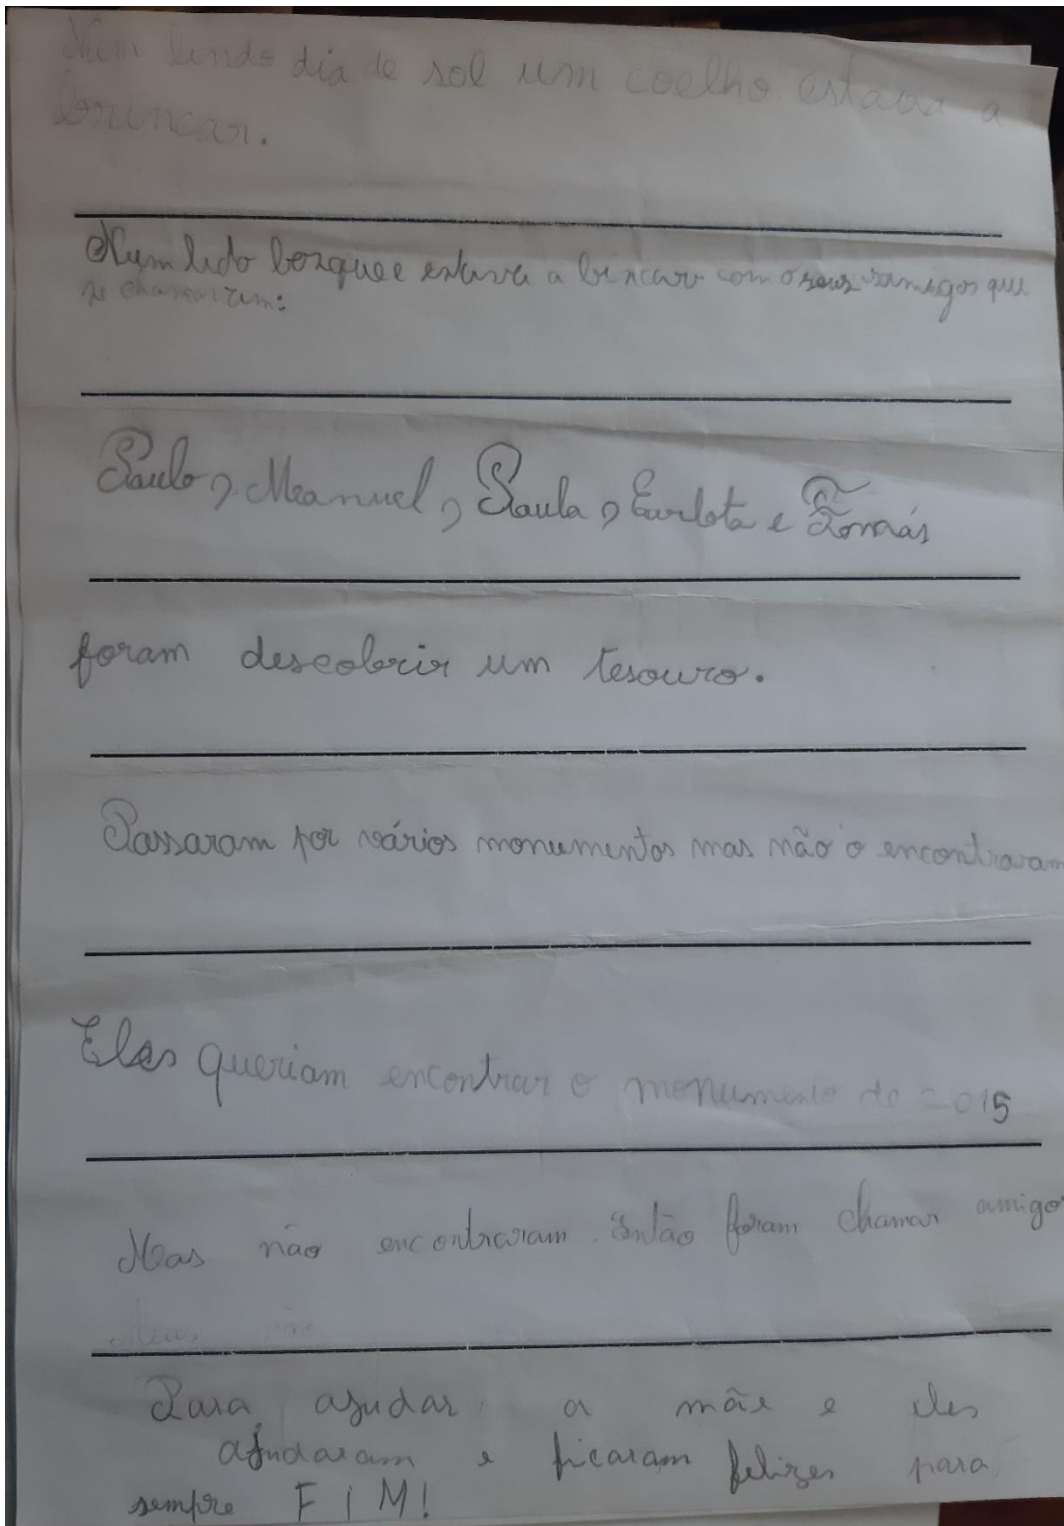 Num lindo dia de sol um coelho estava a
brincar.
Num lido bozquee estava a brincar com o seus amigos que
se chamavam:
Paulo, Manuel, Paula, Carlota e Tomás
foram descobrir um tesouro.
Passaram por vários monumentos mas não o encontraram
Eles queriam encontrar o monumento de 2015
Mas não encontraram. Então foram chamar amigos
Para ajudar a mãe e eles
ajudaram e ficaram felizes para
sempre FiM!